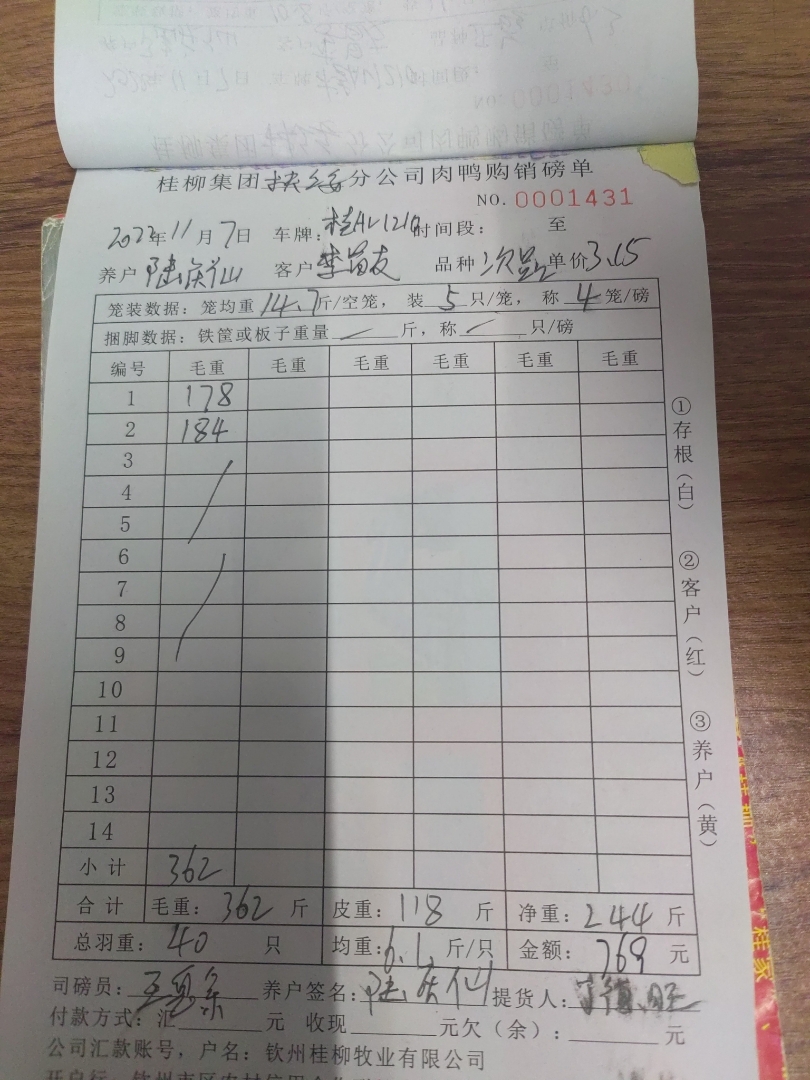 桂柳集团扶绥分公司肉鸭购销磅单
NO. 0001431
2022年11月7日 车牌:桂AV1210时间段: 至
养户 陆庆仙 客户 李富友 品种 次品 单价3.15
笼装数据:笼均重14.7斤/空笼, 装 5 只/笼, 称 4 笼/磅
捆脚数据:铁筐或板子重量 斤,称 只/磅
编号 毛重 毛重 毛重 毛重 毛重 毛重
1 178
2 184
3
4
5
6
7
8
9
10
11
12
13
14
小计 362
合计 毛重: 362 斤 皮重: 118 斤 净重: 244 斤
总羽重: 40 只 均重: 6.1 斤/只 金额: 769 元
司磅员: 养户签名: 陆庆仙 提货人:
付款方式:汇 元 收现 元欠(余): 元
公司汇款账号,户名:钦州桂柳牧业有限公司
①存根(白)
②客户(红)
③养户(黄)
0001430